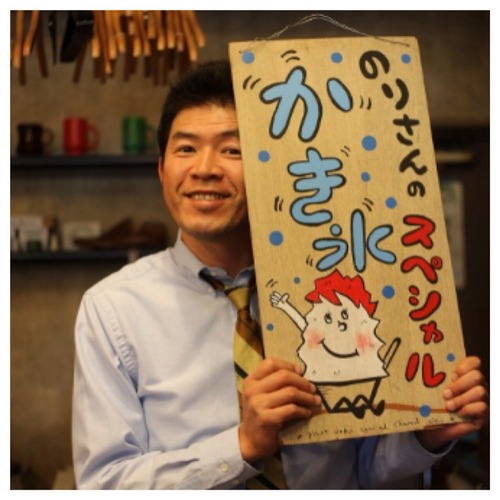 のりさんの
スペシャル
かき氷